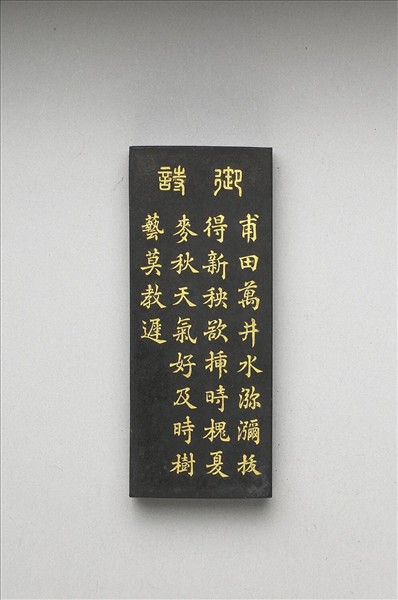 御詩
甫田萬井水㳽瀰拔
得新秧欲揷時槐夏
麥秋天氣好及時樹
藝莫教遲